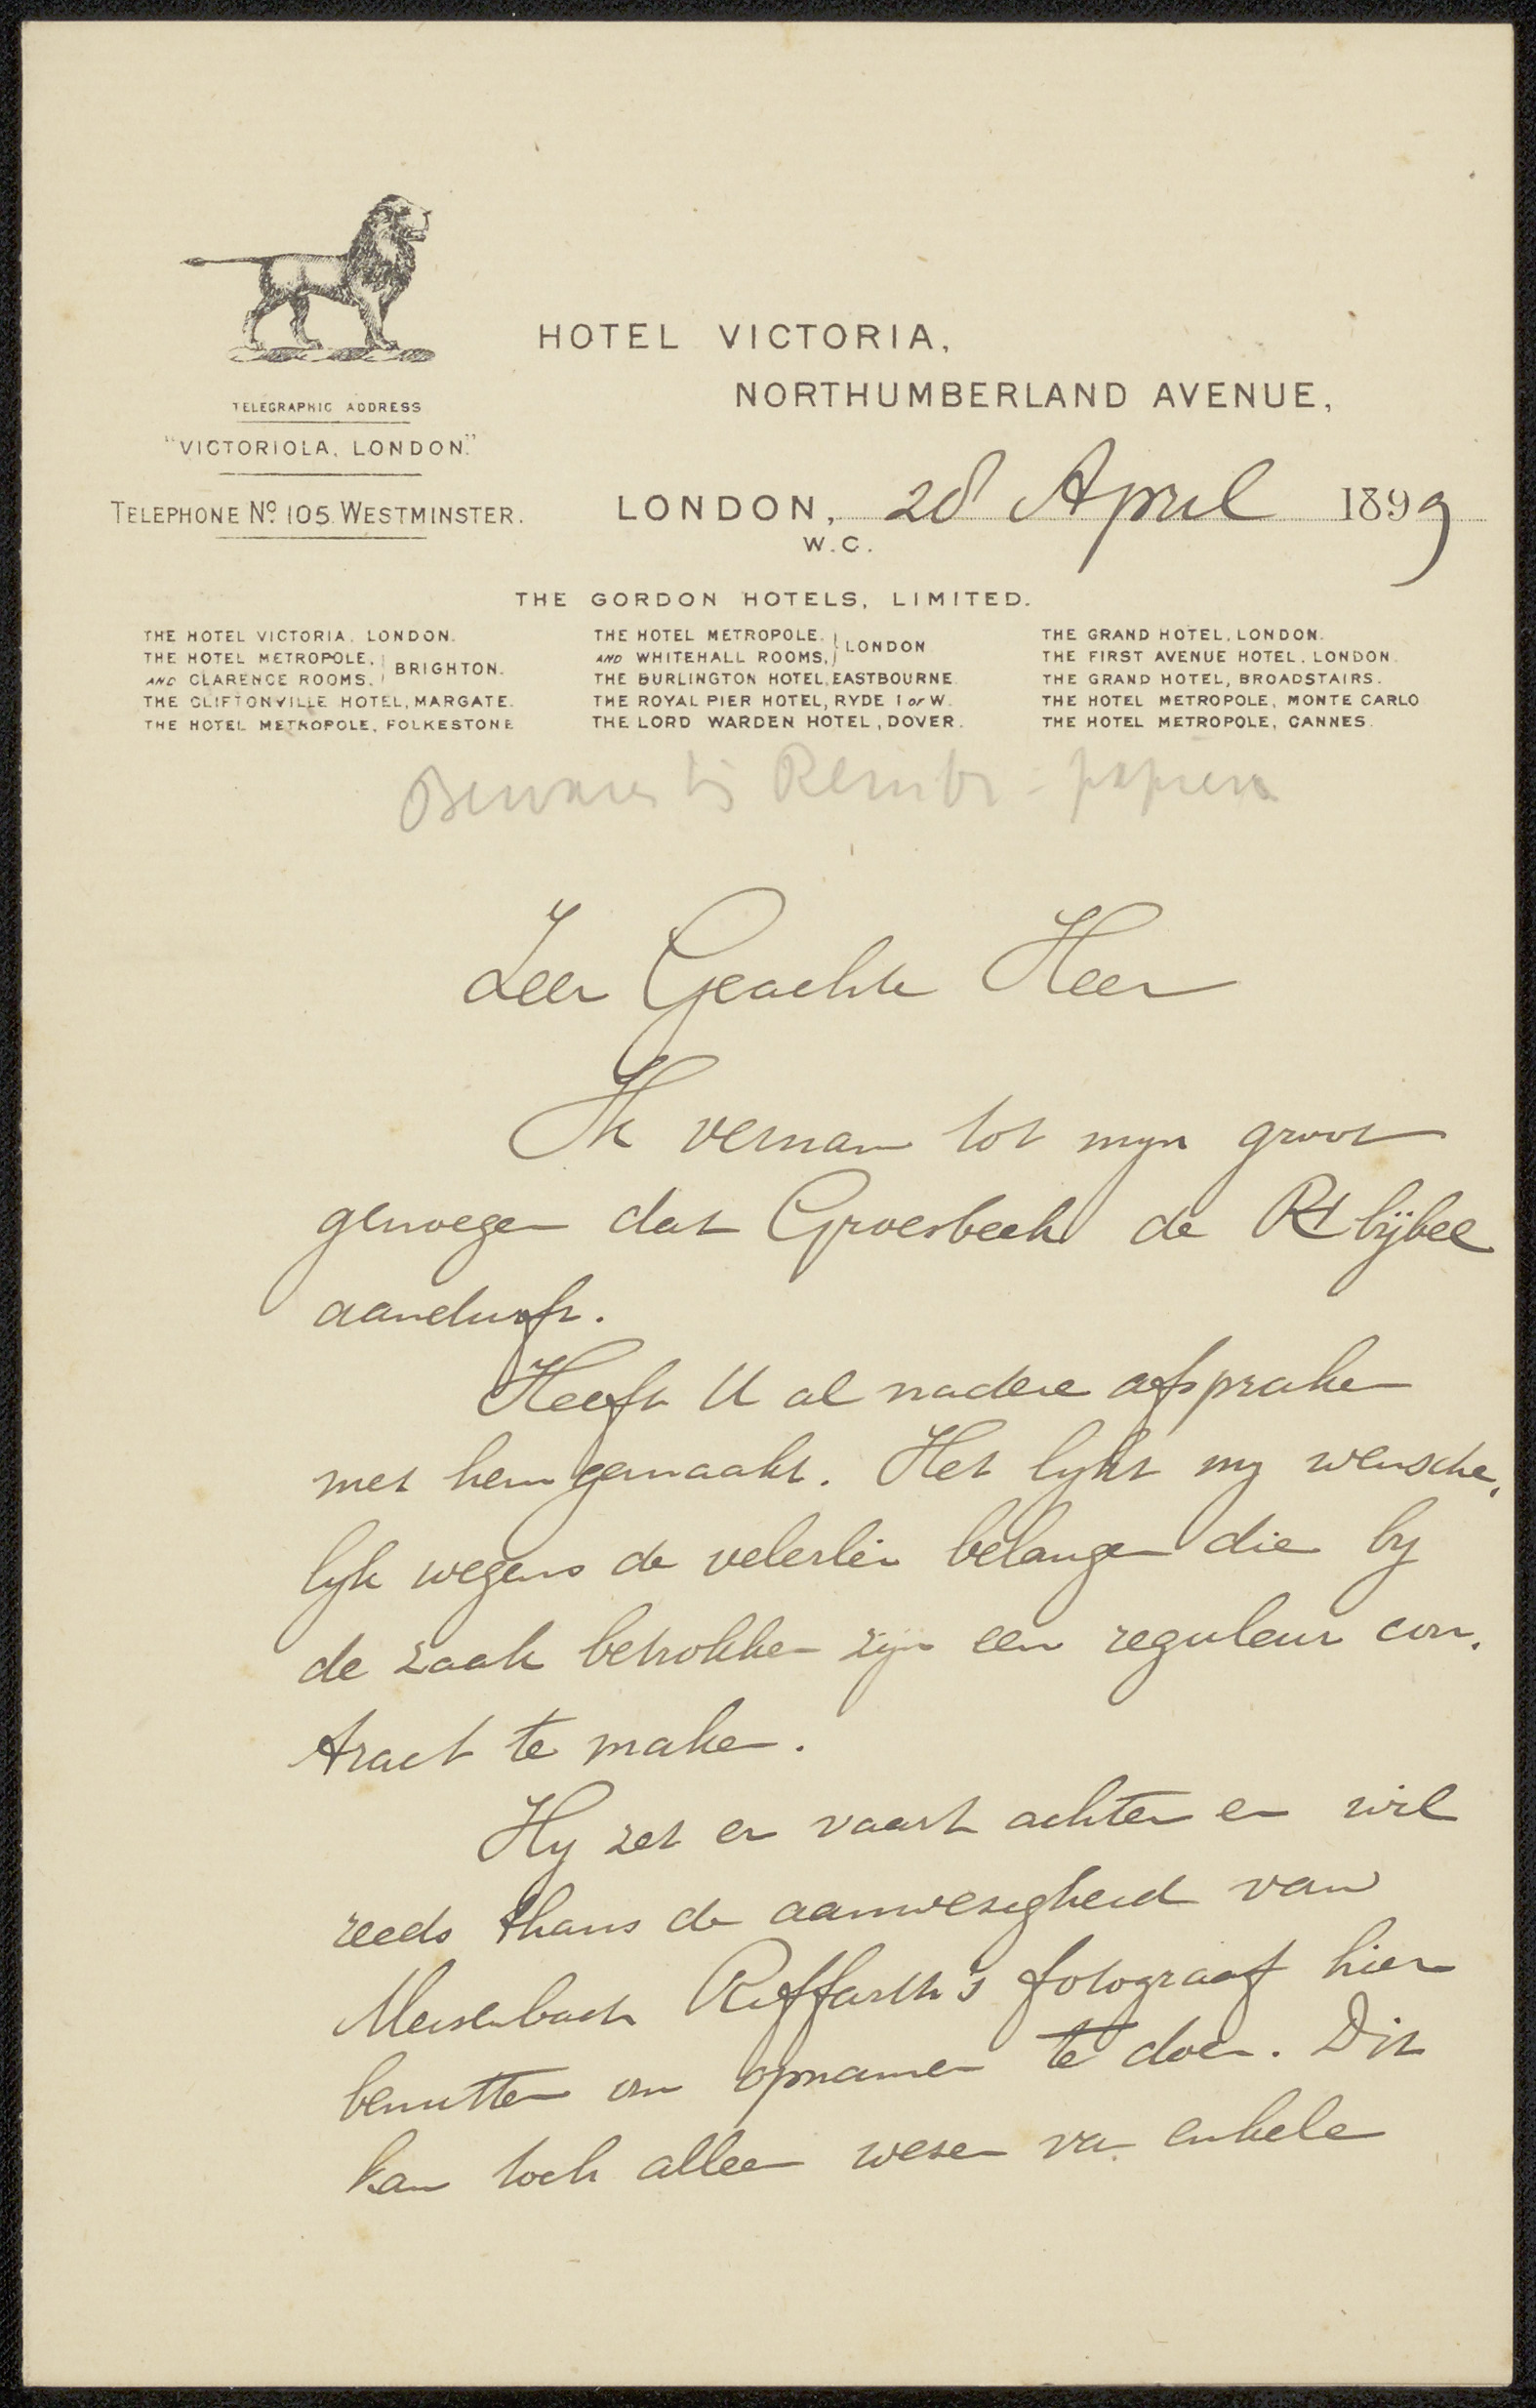 TELEGRAPHIC ADDRESS
"VICTORIOLA, LONDON."
TELEPHONE Nº 105 WESTMINSTER.
HOTEL VICTORIA,
NORTHUMBERLAND AVENUE,
LONDON, 28 April 1899
W.C.
THE GORDON HOTELS, LIMITED.
THE HOTEL VICTORIA, LONDON.
THE HOTEL METROPOLE,
AND CLARENCE ROOMS, } BRIGHTON.
THE CLIFTONVILLE HOTEL, MARGATE.
THE HOTEL METROPOLE, FOLKESTONE
THE HOTEL METROPOLE,
AND WHITEHALL ROOMS, } LONDON
THE BURLINGTON HOTEL, EASTBOURNE.
THE ROYAL PIER HOTEL, RYDE I of W.
THE LORD WARDEN HOTEL, DOVER.
THE GRAND HOTEL, LONDON.
THE FIRST AVENUE HOTEL, LONDON.
THE GRAND HOTEL, BROADSTAIRS.
THE HOTEL METROPOLE, MONTE CARLO
THE HOTEL METROPOLE, CANNES.
Bewaren bij Rembr - papieren
Zeer Geachte Heer
Ik vernam tot myn groot
genoegen dat Groesbeek de Rt bijbel
aandurft.
Heeft U al nadere afspraken
met hem gemaakt. Het lykt my wensche,
lyk wegens de velerlei belangen die by
de zaak betrokken zijn een reguleur con,
tract te maken.
Hy zet er vaart achter en wil
reeds thans de aanwezigheid van
Meisenbach Riffarth's fotograaf hier
benutten om opnamen te doen. Dit
kan toch alleen wezen van enkele